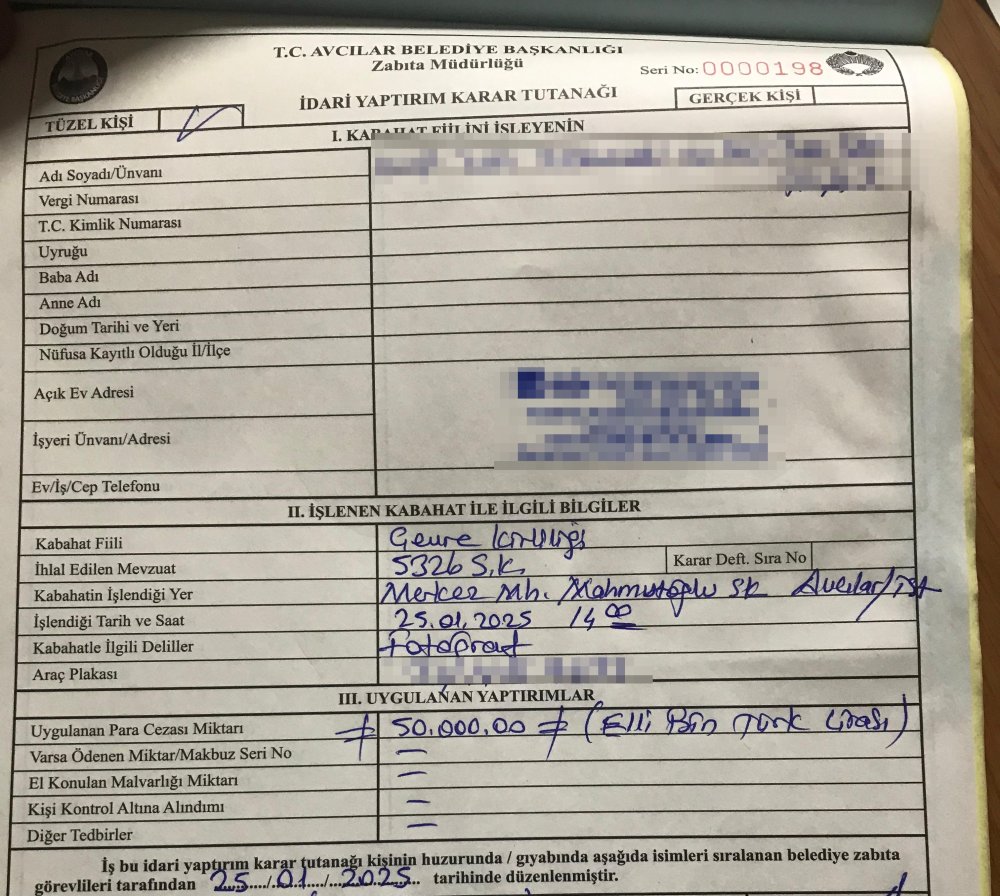 T.C. AVCILAR BELEDİYE BAŞKANLIĞI
Zabıta Müdürlüğü
Seri No: 0000198
İDARİ YAPTIRIM KARAR TUTANAĞI
TÜZEL KİŞİ
GERÇEK KİŞİ
I. KABAHAT FİİLİNİ İŞLEYENİN
Adı Soyadı/Ünvanı
Vergi Numarası
T.C. Kimlik Numarası
Uyruğu
Baba Adı
Anne Adı
Doğum Tarihi ve Yeri
Nüfusa Kayıtlı Olduğu İl/İlçe
Açık Ev Adresi
İşyeri Ünvanı/Adresi
Ev/İş/Cep Telefonu
II. İŞLENEN KABAHAT İLE İLGİLİ BİLGİLER
Kabahat Fiili Çevre Kirliliği
İhlal Edilen Mevzuat 5326 S.K. Karar Deft. Sıra No
Kabahatin İşlendiği Yer Merkez Mh. Mahmutoğlu Sk Avcılar/İST
İşlendiği Tarih ve Saat 25.01.2025 14 00
Kabahatle İlgili Deliller Fotoğraf
Araç Plakası
III. UYGULANAN YAPTIRIMLAR
Uygulanan Para Cezası Miktarı 50.000,00 (Elli Bin Türk Lirası)
Varsa Ödenen Miktar/Makbuz Seri No —
El Konulan Malvarlığı Miktarı —
Kişi Kontrol Altına Alındımı —
Diğer Tedbirler —
İş bu idari yaptırım karar tutanağı kişinin huzurunda / gıyabında aşağıda isimleri sıralanan belediye zabıta
görevlileri tarafından 25/01/2025 tarihinde düzenlenmiştir.